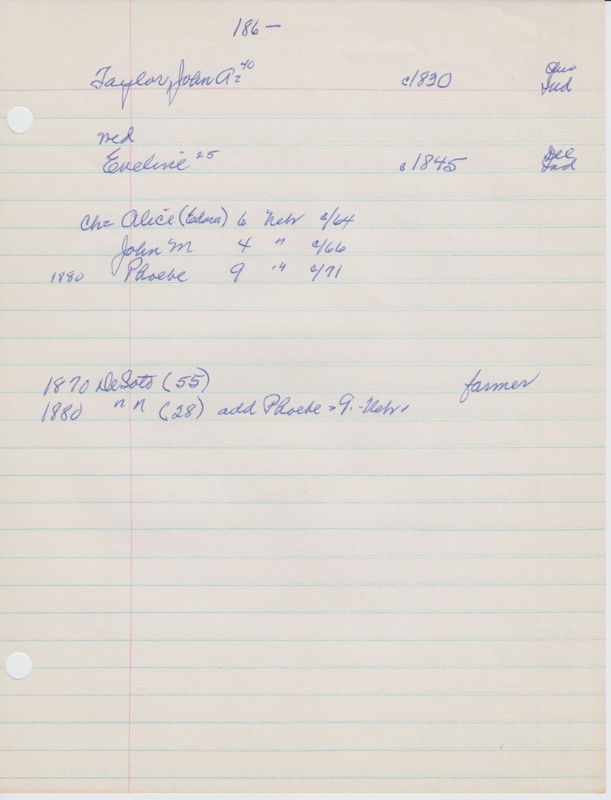 186-
Taylor, John A= 40 c1830 Ohio Ind
med
Eveline 25 c1845 Del Ind
Ch= Alice (Edna) 6 Nebr c/64
John M 4 " c/66
1880 Phoebe 9 " c/71
1870 DeSoto (55) farmer
1880 " " (28) add Phoebe - 9 - Nebr.